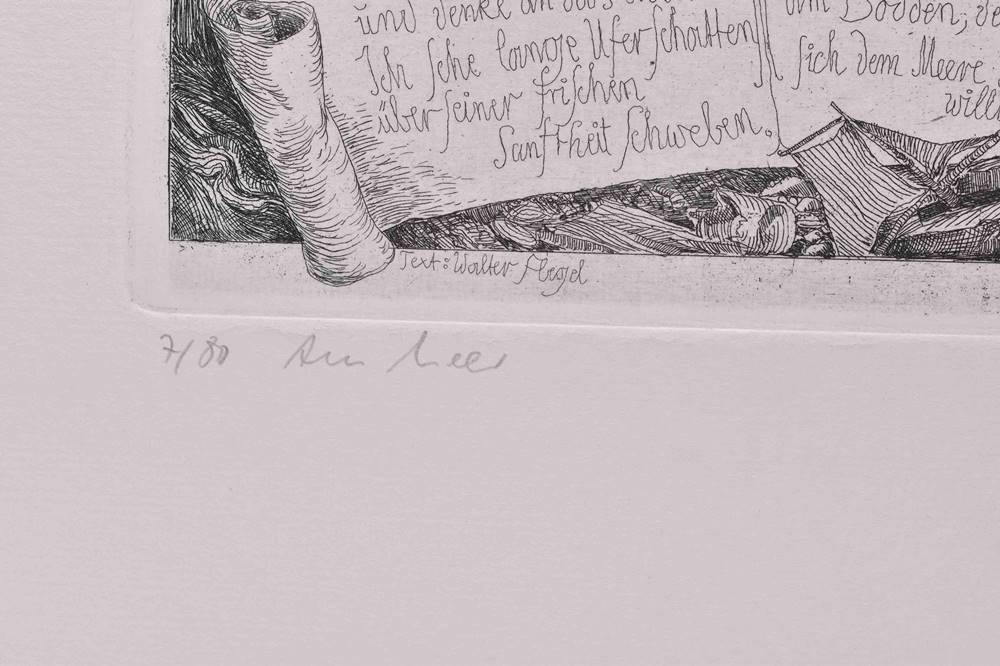 und denke an das
Ich sehe lange Uferschatten
über seiner frischen
Sanftheit schweben.
am Bodden,
sich dem Meere
Text: Walter Flegel
7/80 Am Meer